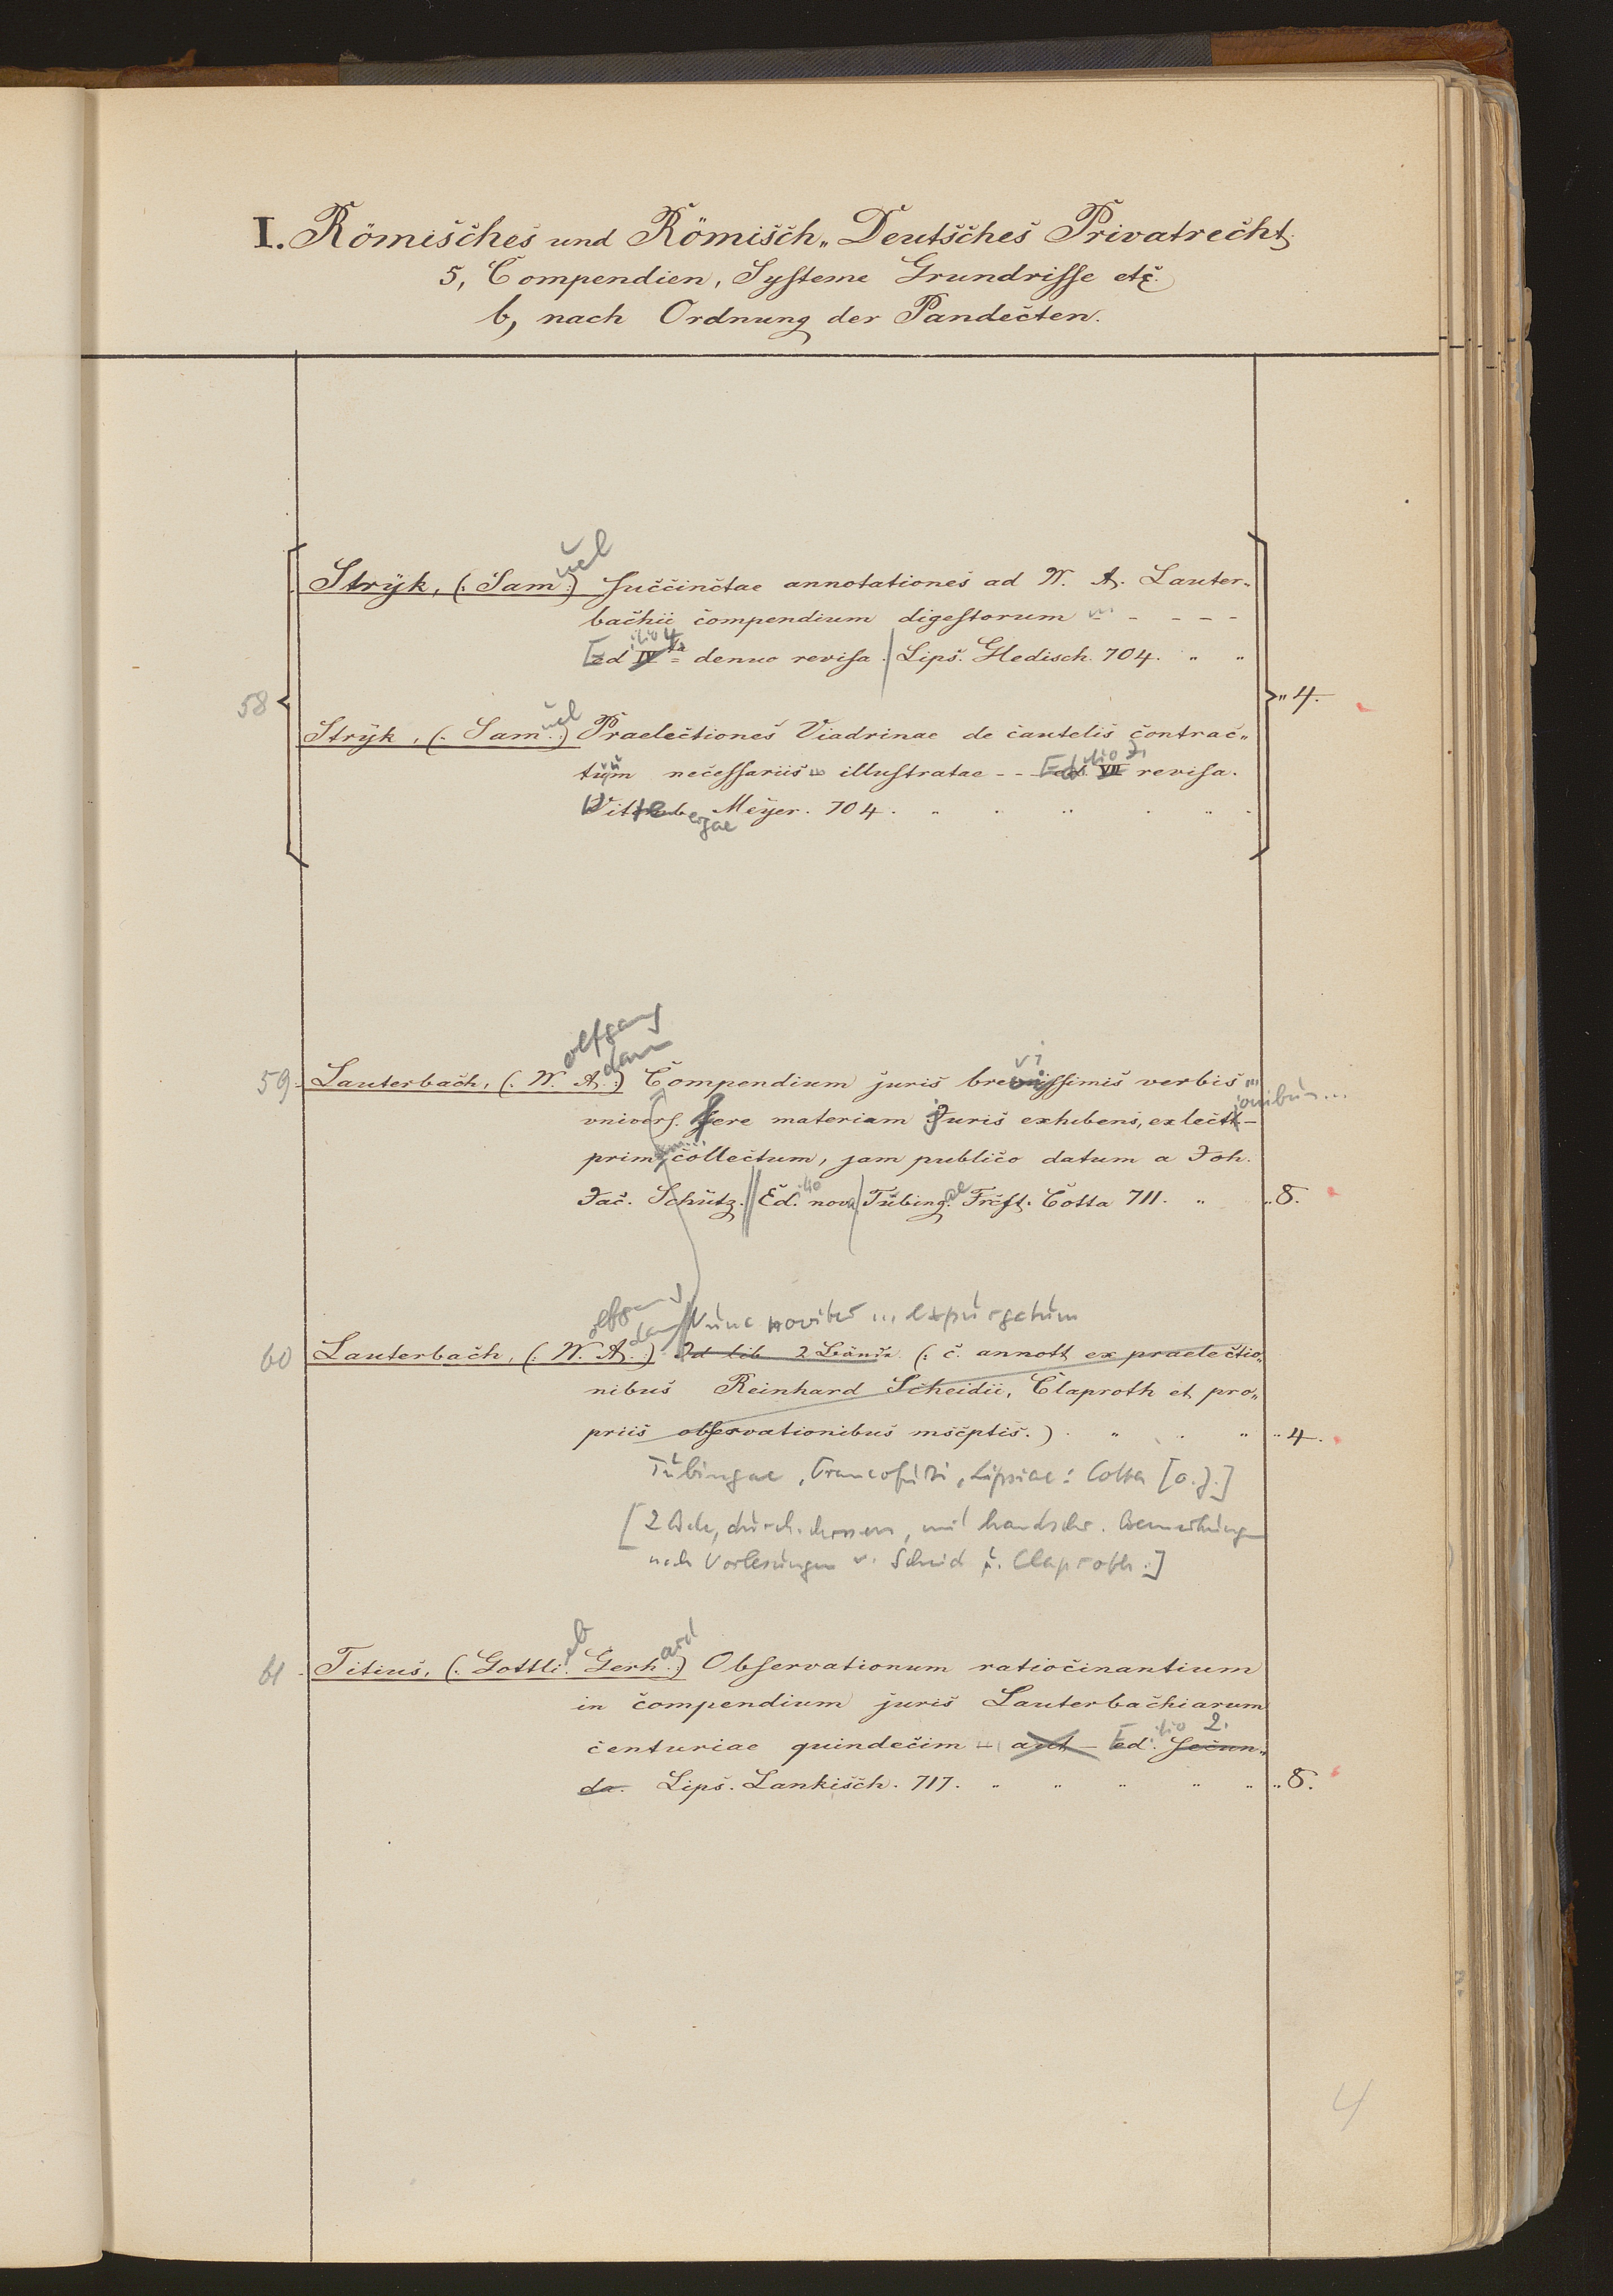 I. Römisches und Römisch„ Deutsches Privatrecht.
5, Compendien, Systeme Grundrisse etc.
b, nach Ordnung der Pandecten.
uel
Stryk, (: Sam :) succinctae annotationes ad W. A. Lauter„
bachii compendium digestorum ... - - - -
itio 4.
Ed IV ta denuo revisa. Lips. Gledisch. 704. „ „
58 „ 4.
uel
Stryk, (: Sam. :) Praelectiones Viadrinae de cautelis contrac„
itio 7.
tuum necessariis ... illustratae - - Ed. VII revisa.
Wittenb Meyer. 704. „ „ „ „ „
ergae
olfgang
dam
vi
59. Lauterbach, (: W. A. :) Compendium juris brevissimis verbis ...
onibus...
univers. fere materiam Juris exhibens, ex lectt -
prim. collectum, jam publico datum a Joh.
itio ae
Jac. Schütz. Ed. nova Tübing. Frcft. Cotta 711. „ „ 8.
Nunc noviter ... expurgatum
olfgang
dam
60 Lauterbach, (: W. A. :) Id lib 2 Bände (: c. annott ex praelectio„
nibus Reinhard Scheidii, Claproth et pro„
priis observationibus mscptis.) „ „ „ „ 4.
Tübingae, Francofurti, Lipsiae: Cotta [o. J.]
[2 Bde, durchschossen, mit handschr. Bemerkungen
nach Vorlesungen v. Scheid u. Claproth.]
eb ard
61 Titius, (: Gottli. Gerh. :) Observationum ratiocinantium
in compendium juris Lauterbachiarum
itio 2.
centuriae quindecim - auct - Ed. secun„
da. Lips. Lankisch. 717. „ „ „ „ „ „ 8.
4